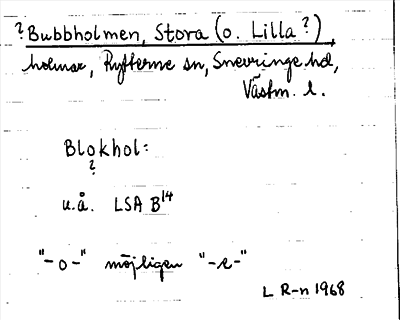 ? Bubbholmen, Stora (o. Lilla?)
holmar, Rytterne sn, Snevringe hd,
Västm. l.
Blokhol:
?
u.å. LSA B14
"-o-" möjligen "-e-"
L R-n 1968